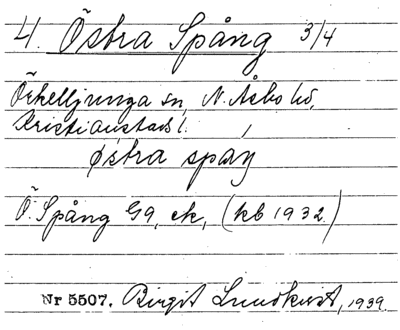 4. Östra Spång 3/4
Örkelljunga sn, N. Åsbo hd,
Kristianstads l.
østra spåŋ
Ö. Spång Gg, ek, (kb 1932)
Nr 5507. Birgit Lundkvist, 1939.